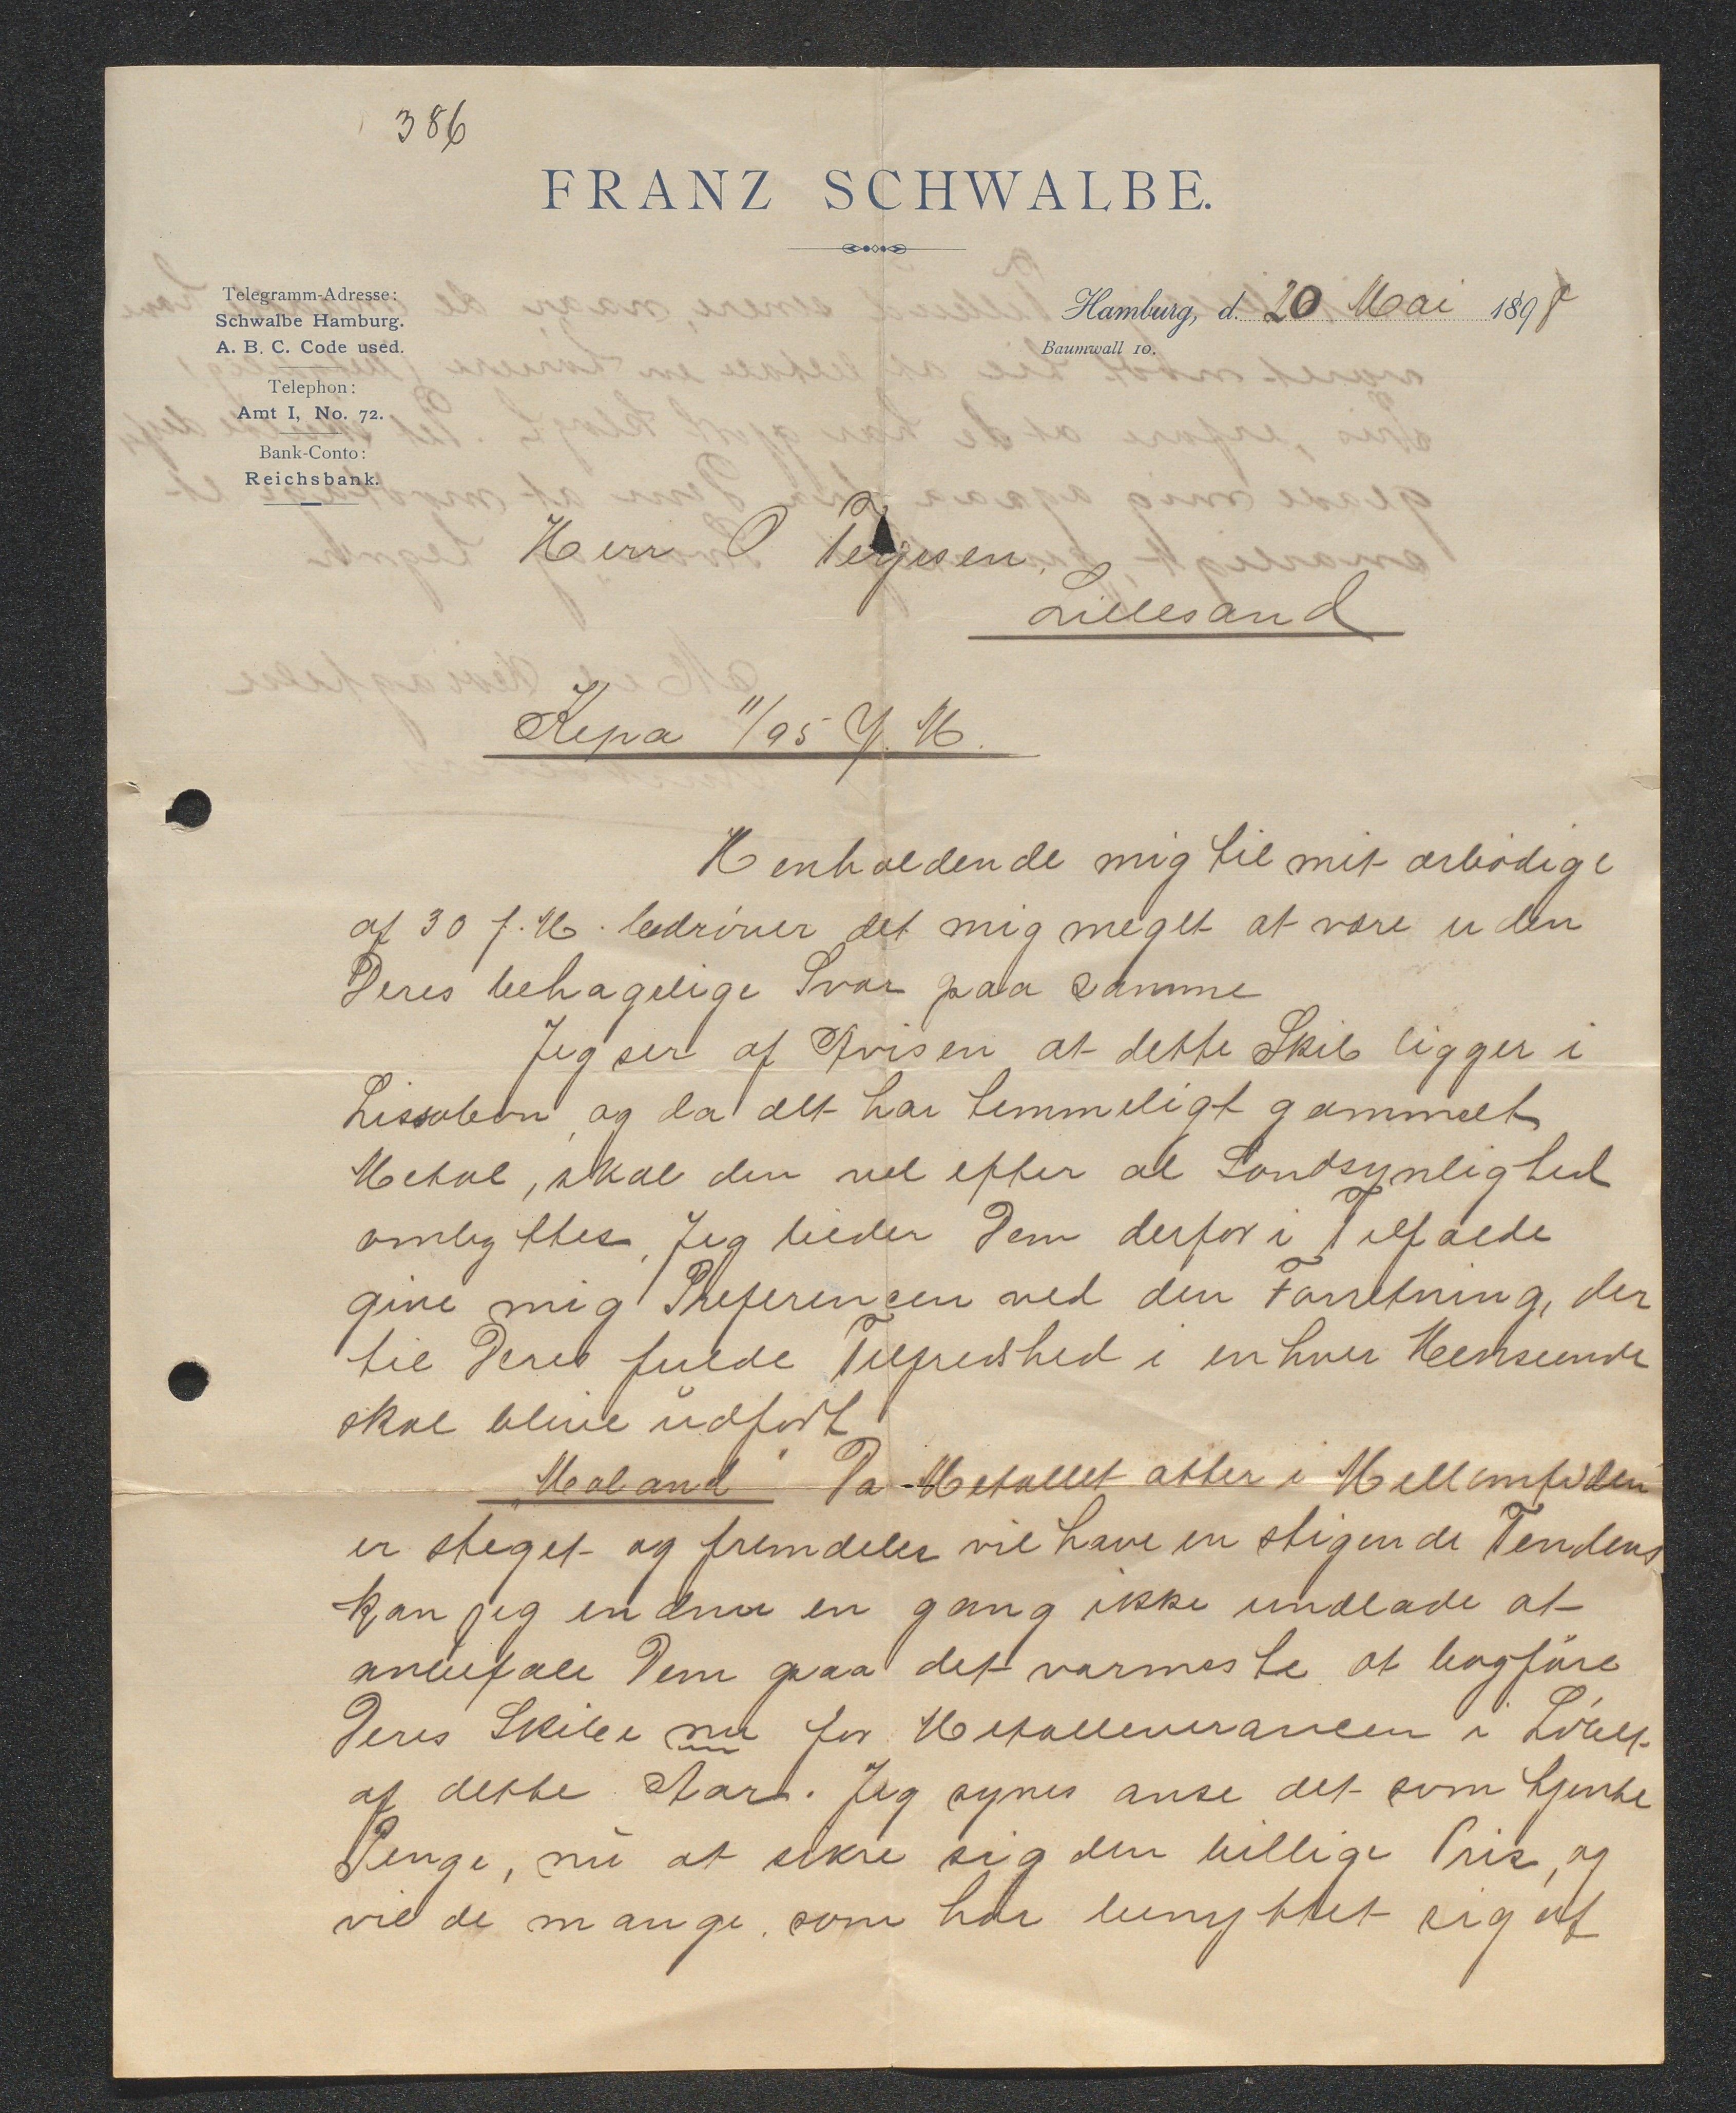 386
FRANZ SCHWALBE.
Telegramm-Adresse:
Schwalbe Hamburg.
A. B. C. Code used.
Telephon:
Amt I, No. 72.
Bank-Conto:
Reichsbank.
Hamburg, d. 20 Mai 1898
Baumwall 10.
Herr O Terjesen.
Lillesand
Kepa 11/95 Y. M.
Henholdende mig til mit ærbödige
af 30 f. M. bedröver det mig meget at være uden
Deres behagelige Svar paa samme
Jeg ser af Avisen at dette Skib ligger i
Lissabon, og da det har temmeligt gammelt
Metal, skal den vel efter al Sandsynlighed
ombyttes, Jeg beder Dem derfor i Tilfælde
give mig Preferencen ved den Forretning, der
til Deres fulde Tilfredshed i enhver Henseende
skal blive udfört
"Moland" Da Metallet atter i Mellemtiden
er steget og fremdeles vil have en stigende Tendens
kan jeg endnu en gang ikke undlade at
anbefale Dem paa det varmeste at bogföre
Deres Skibe nu for Metalleverancen i Löbet
af dette Aar. Jeg synes anse det som tjente
Penge, nu at sikre sig den billige Pris, og
vil de mange, som har benyttet sig af